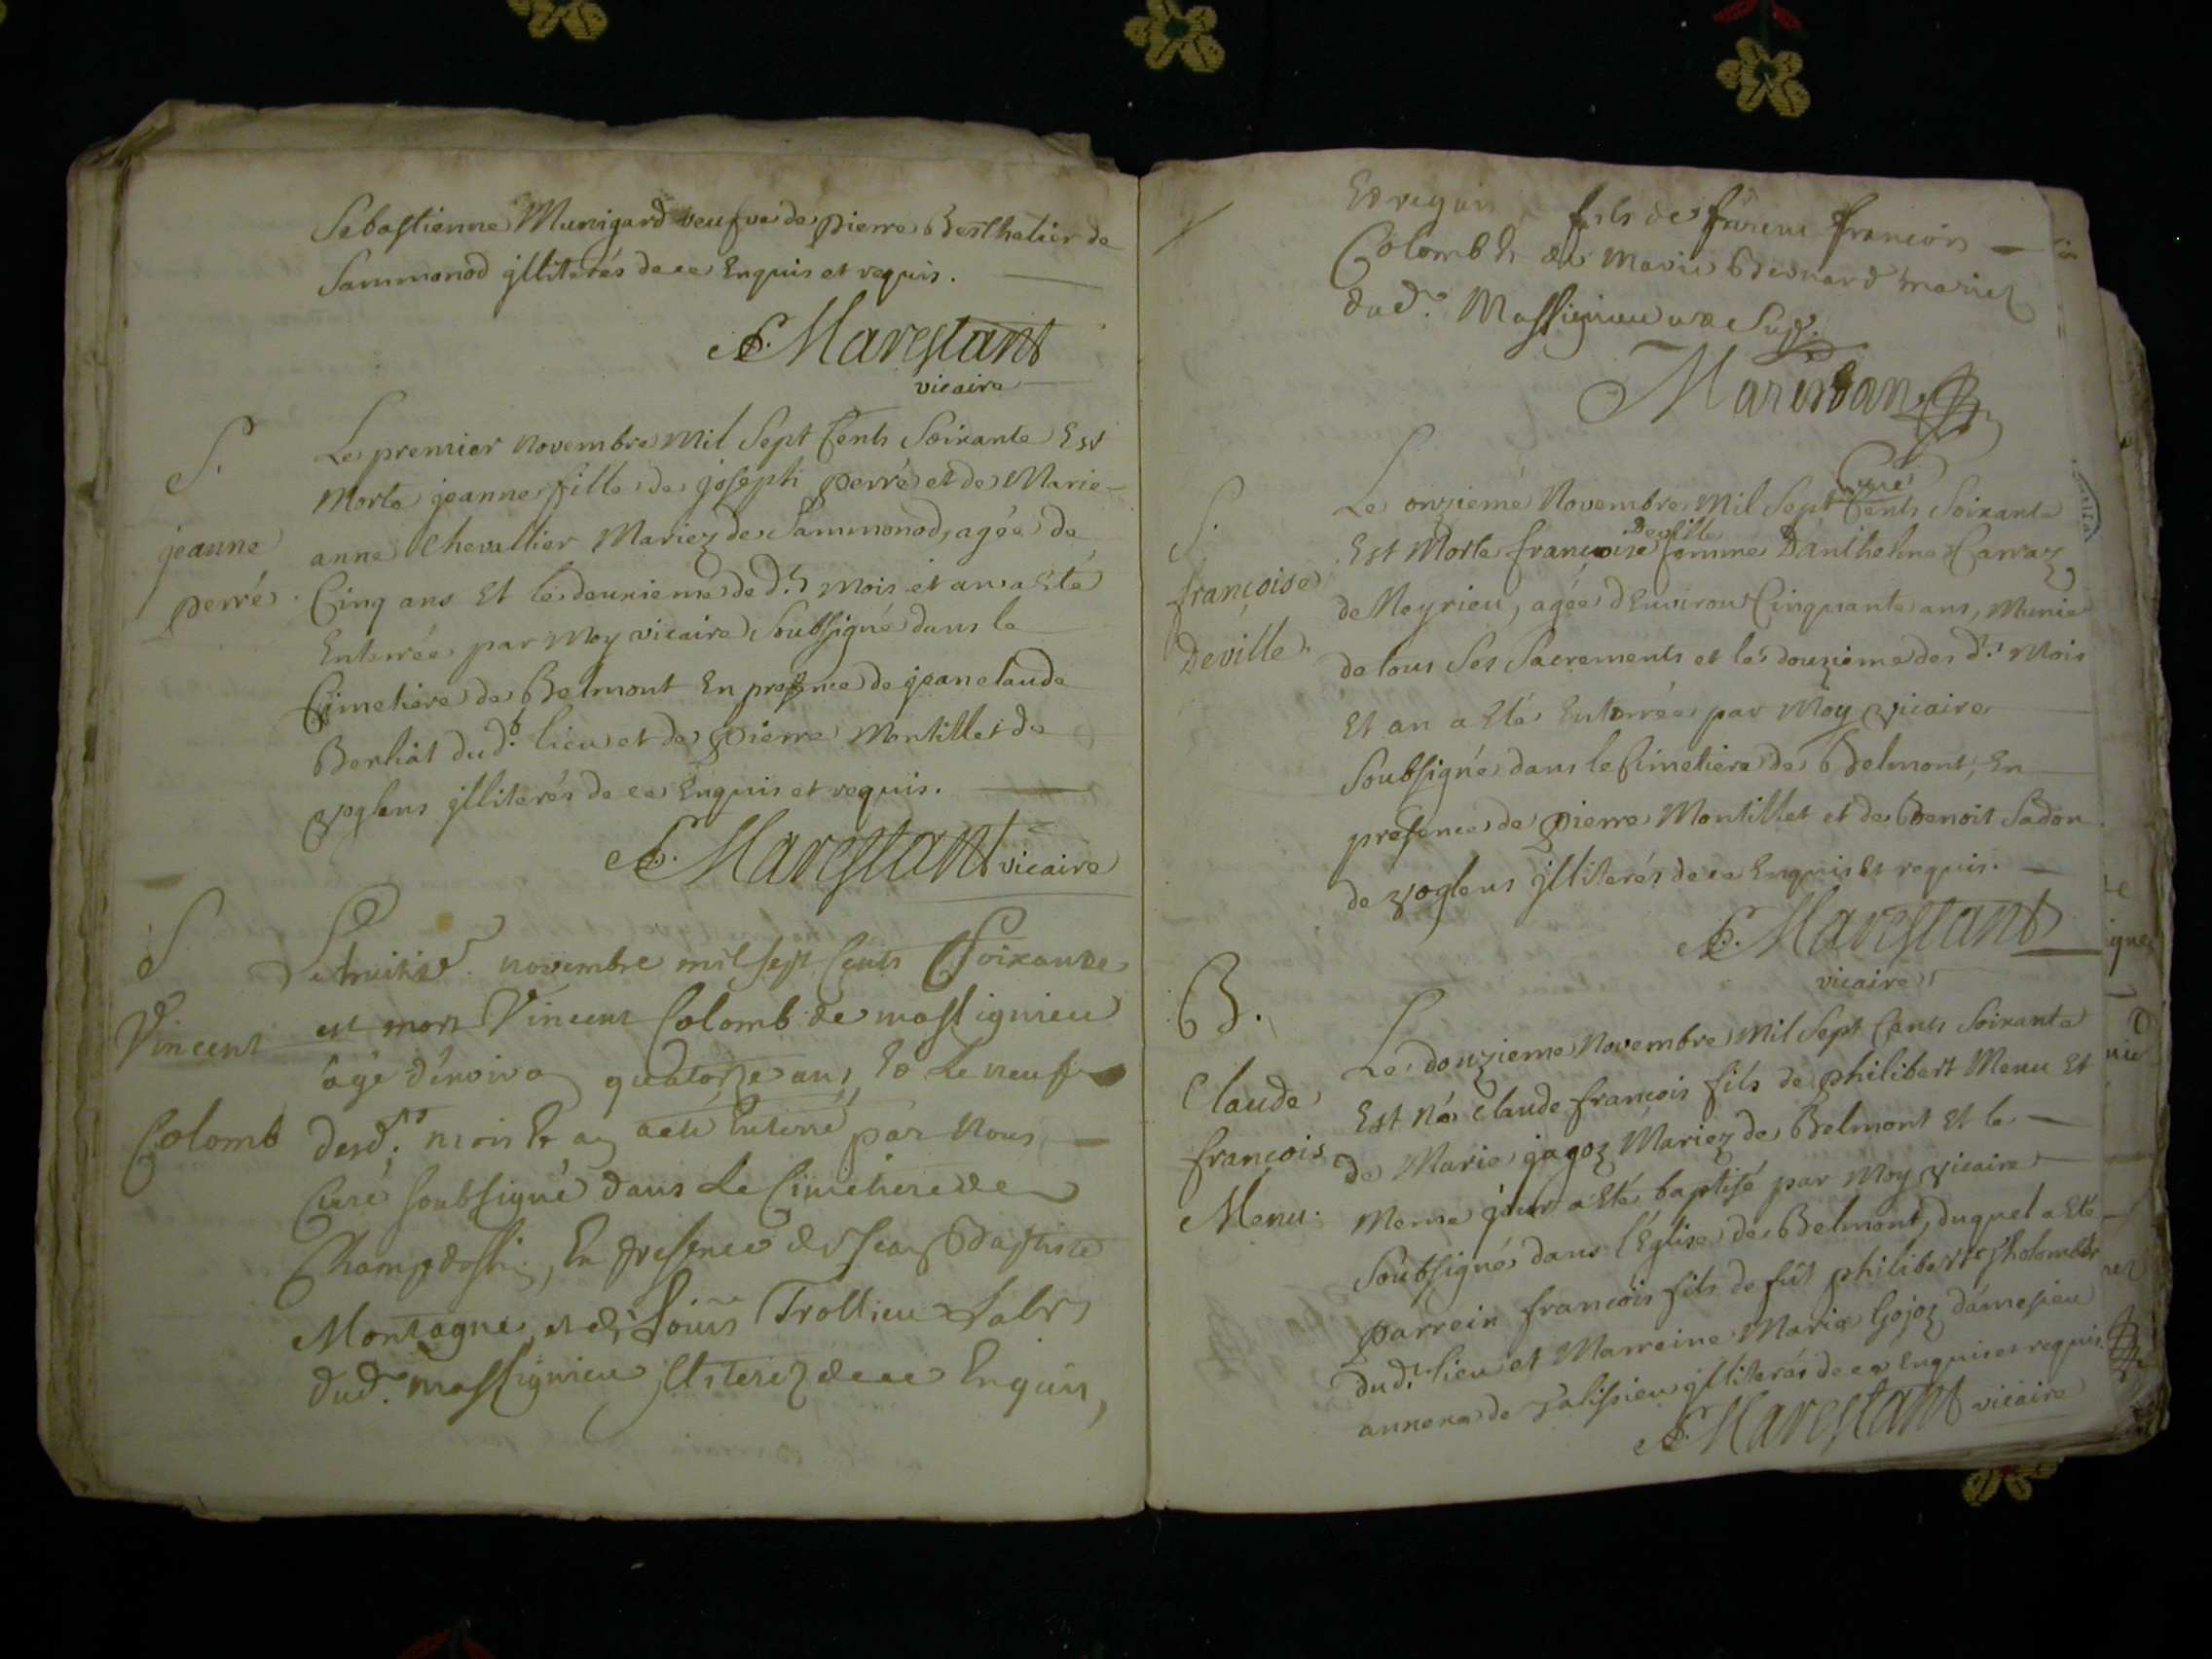 Sebastienne Munigard veufve de pierre Berthelier de
Sammonod jlliterés de ce Enquis et requis.
Marestant
vicaire
S.
jeanne
perré.
Le premier novembre Mil Sept Cents Soixante Est
Morte jeanne fille de joseph perré et de Marie
anne Chevallier Mariez de Sammonod, agée de
Cinq ans Et le deuxieme de d.ts Mois et an a Eté
Enterrée par Moy vicaire Soubsigné dans le
Cimetiere de Belmont En presence de jean claude
Berliat dud.t lieu et de pierre Montillet de
voglens jlliterés de ce Enquis et requis.
Marestant vicaire
S
Vincent
Colomb
Le huitie. novembre mil sept Cents Soixante
est mort Vincent Colomb de massignieu
âgé d'environ quatorze ans, Et Le neuf
desd.ts mois Et an a eté Enterré par Nous
Curé soubsigné dans Le Cimetiere de
En presence de Jean Baptiste
Montagne, et de Louis Trollieu
dud. massignieu jlliterez de ce Enquis,
Et requis fils de François
Colomb & de Marie Bernard mariez
dud. Massignieu
Marestan
Curé
S.
françoise
Deville.
Le onzieme Novembre Mil Sept Cents Soixante
Est Morte françoise Deville femme D'anthelme Carraz
de Meyrieu, agée d'Environ Cinquante ans, Munie
de tous Ses Sacrements et le douzieme des d.ts Mois
Et an a Eté Enterrée par Moy vicaire
Soubsigné dans le Cimetiere de Belmont, En
presence de pierre Montillet et de Benoit Sadon
de voglens jlliterés de ce Enquis Et requis.
Marestant
vicaire
B.
Claude
françois
Menu.
Le douzieme Novembre Mil Sept Cents Soixante
Est Né Claude françois fils de philibert Menu Et
de Marie gagoz Mariez de Belmont Et le
Meme jour a Eté baptisé par Moy vicaire
Soubsigné dans l'Eglise de Belmont, duquel a Eté
parrein françois fils de fût philibert
dud.t lieu et Marreine Marie Gojoz
annexe de jlliterés de ce Enquis et requis.
Marestant vicaire